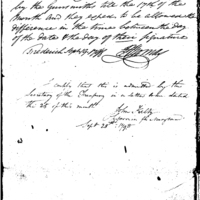 by the Gunsmiths till the 19th of the
Month and they expect to be allowed the
difference in the time between the day
of the date & the day of their signature
Frederick Sept
I certify that this is admitted by the
Secretary of the Company in a letter dated
the 26 of this month
John Kelly
Sept 28th